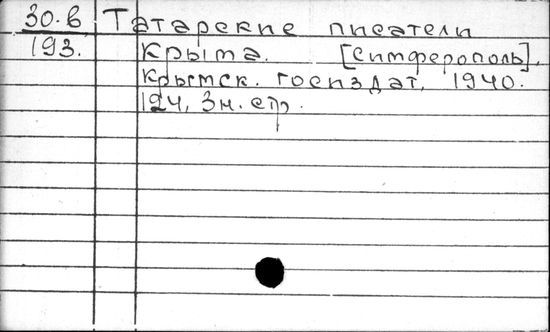 30.в
193.
Татарские писатели
Крыма. [Симферополь],
Крымск. госиздат, 1940.
124, 3 н. стр.